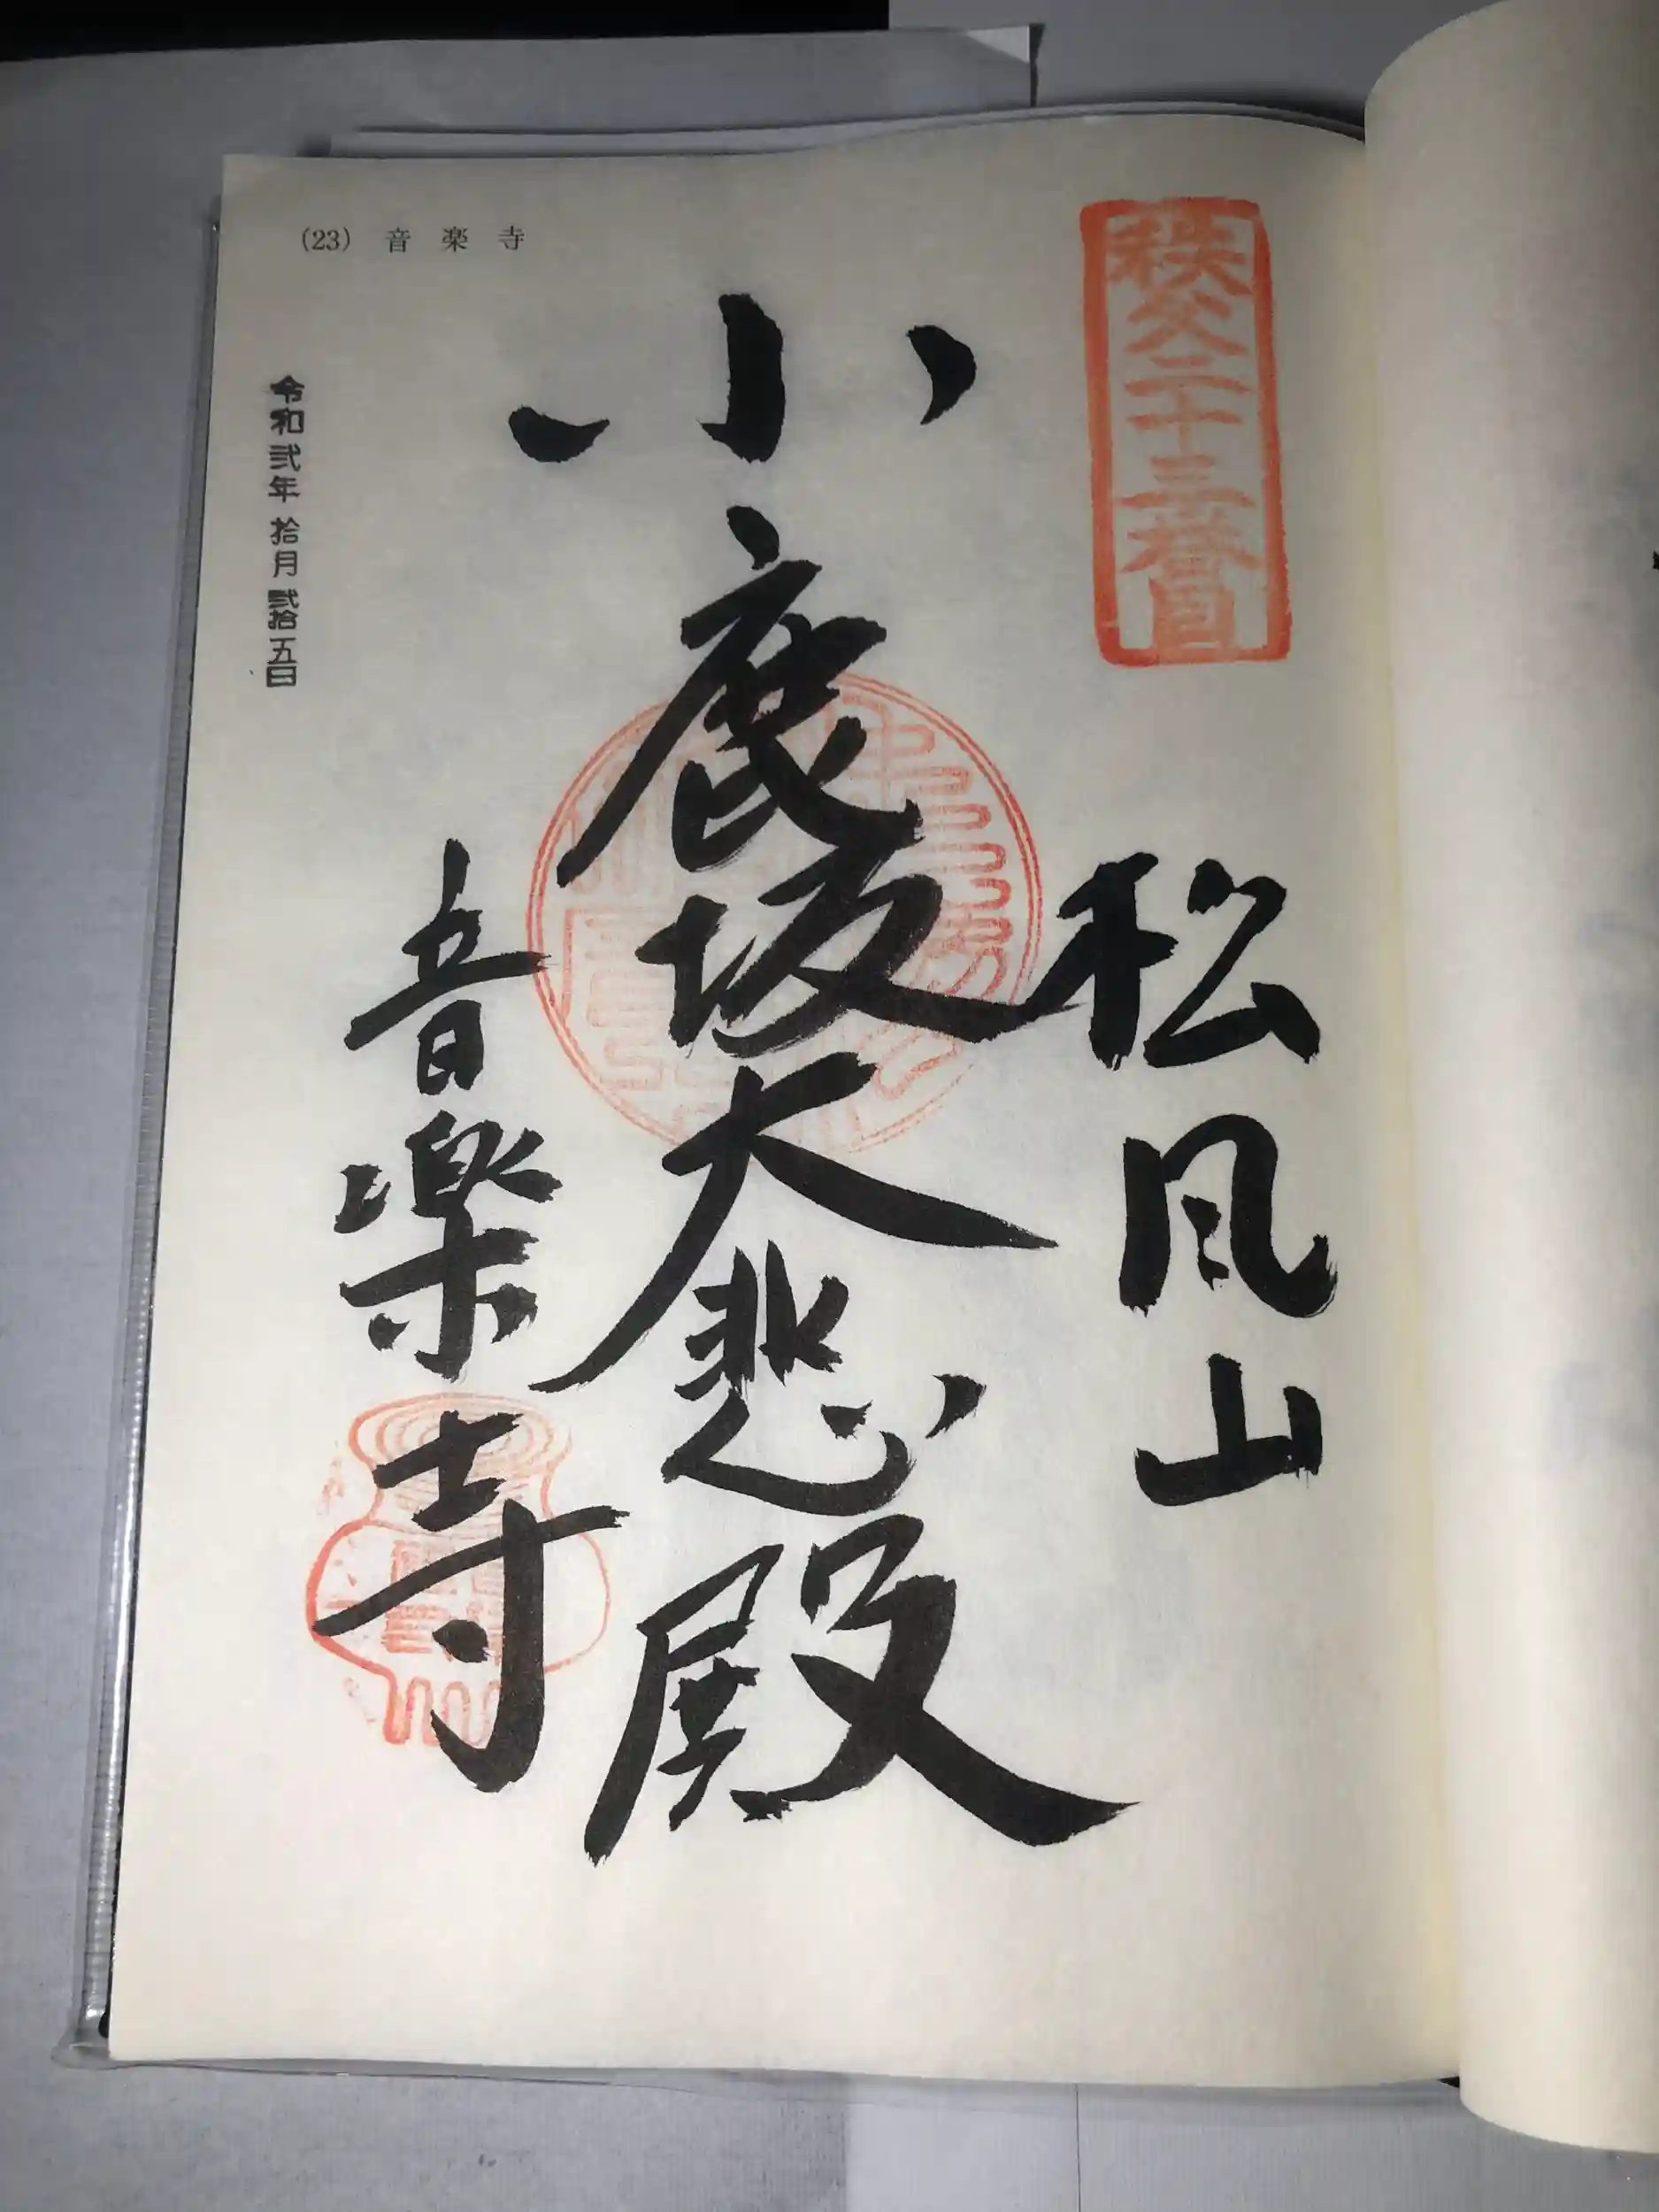 (23) 音楽寺
秩父二十三番目
松风山
小鹿坂大悲殿
音楽寺
令和弐年 拾月 弐拾五日